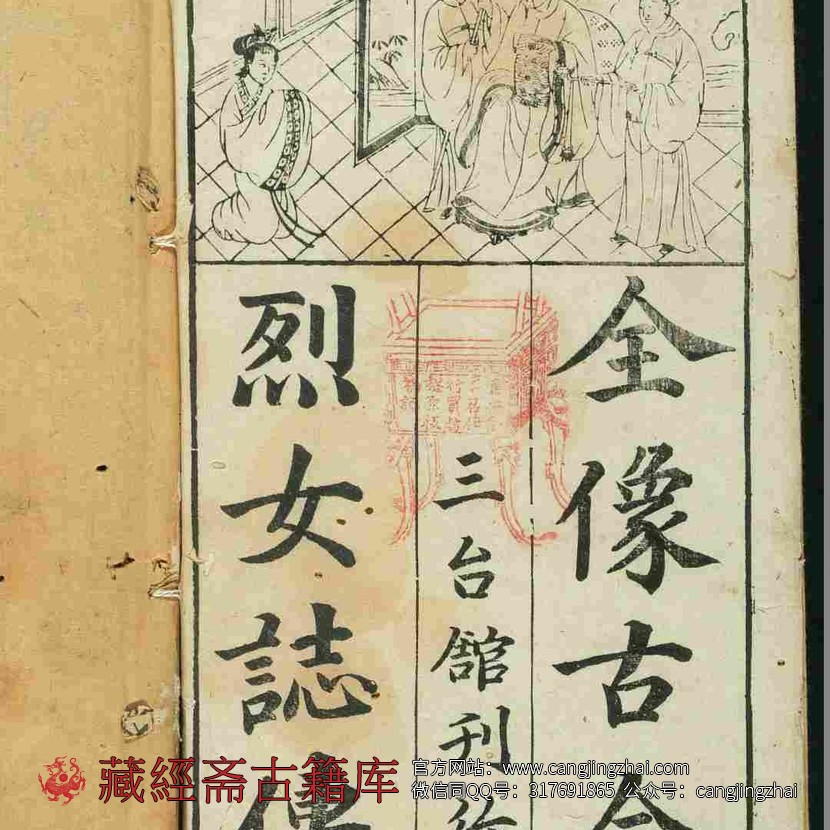 全像古今
烈女誌傳
三台舘刋
藏經斎古籍库
官方网站：www.cangjingzhai.com
微信同QQ号：317691865 公众号：cangjingzhai